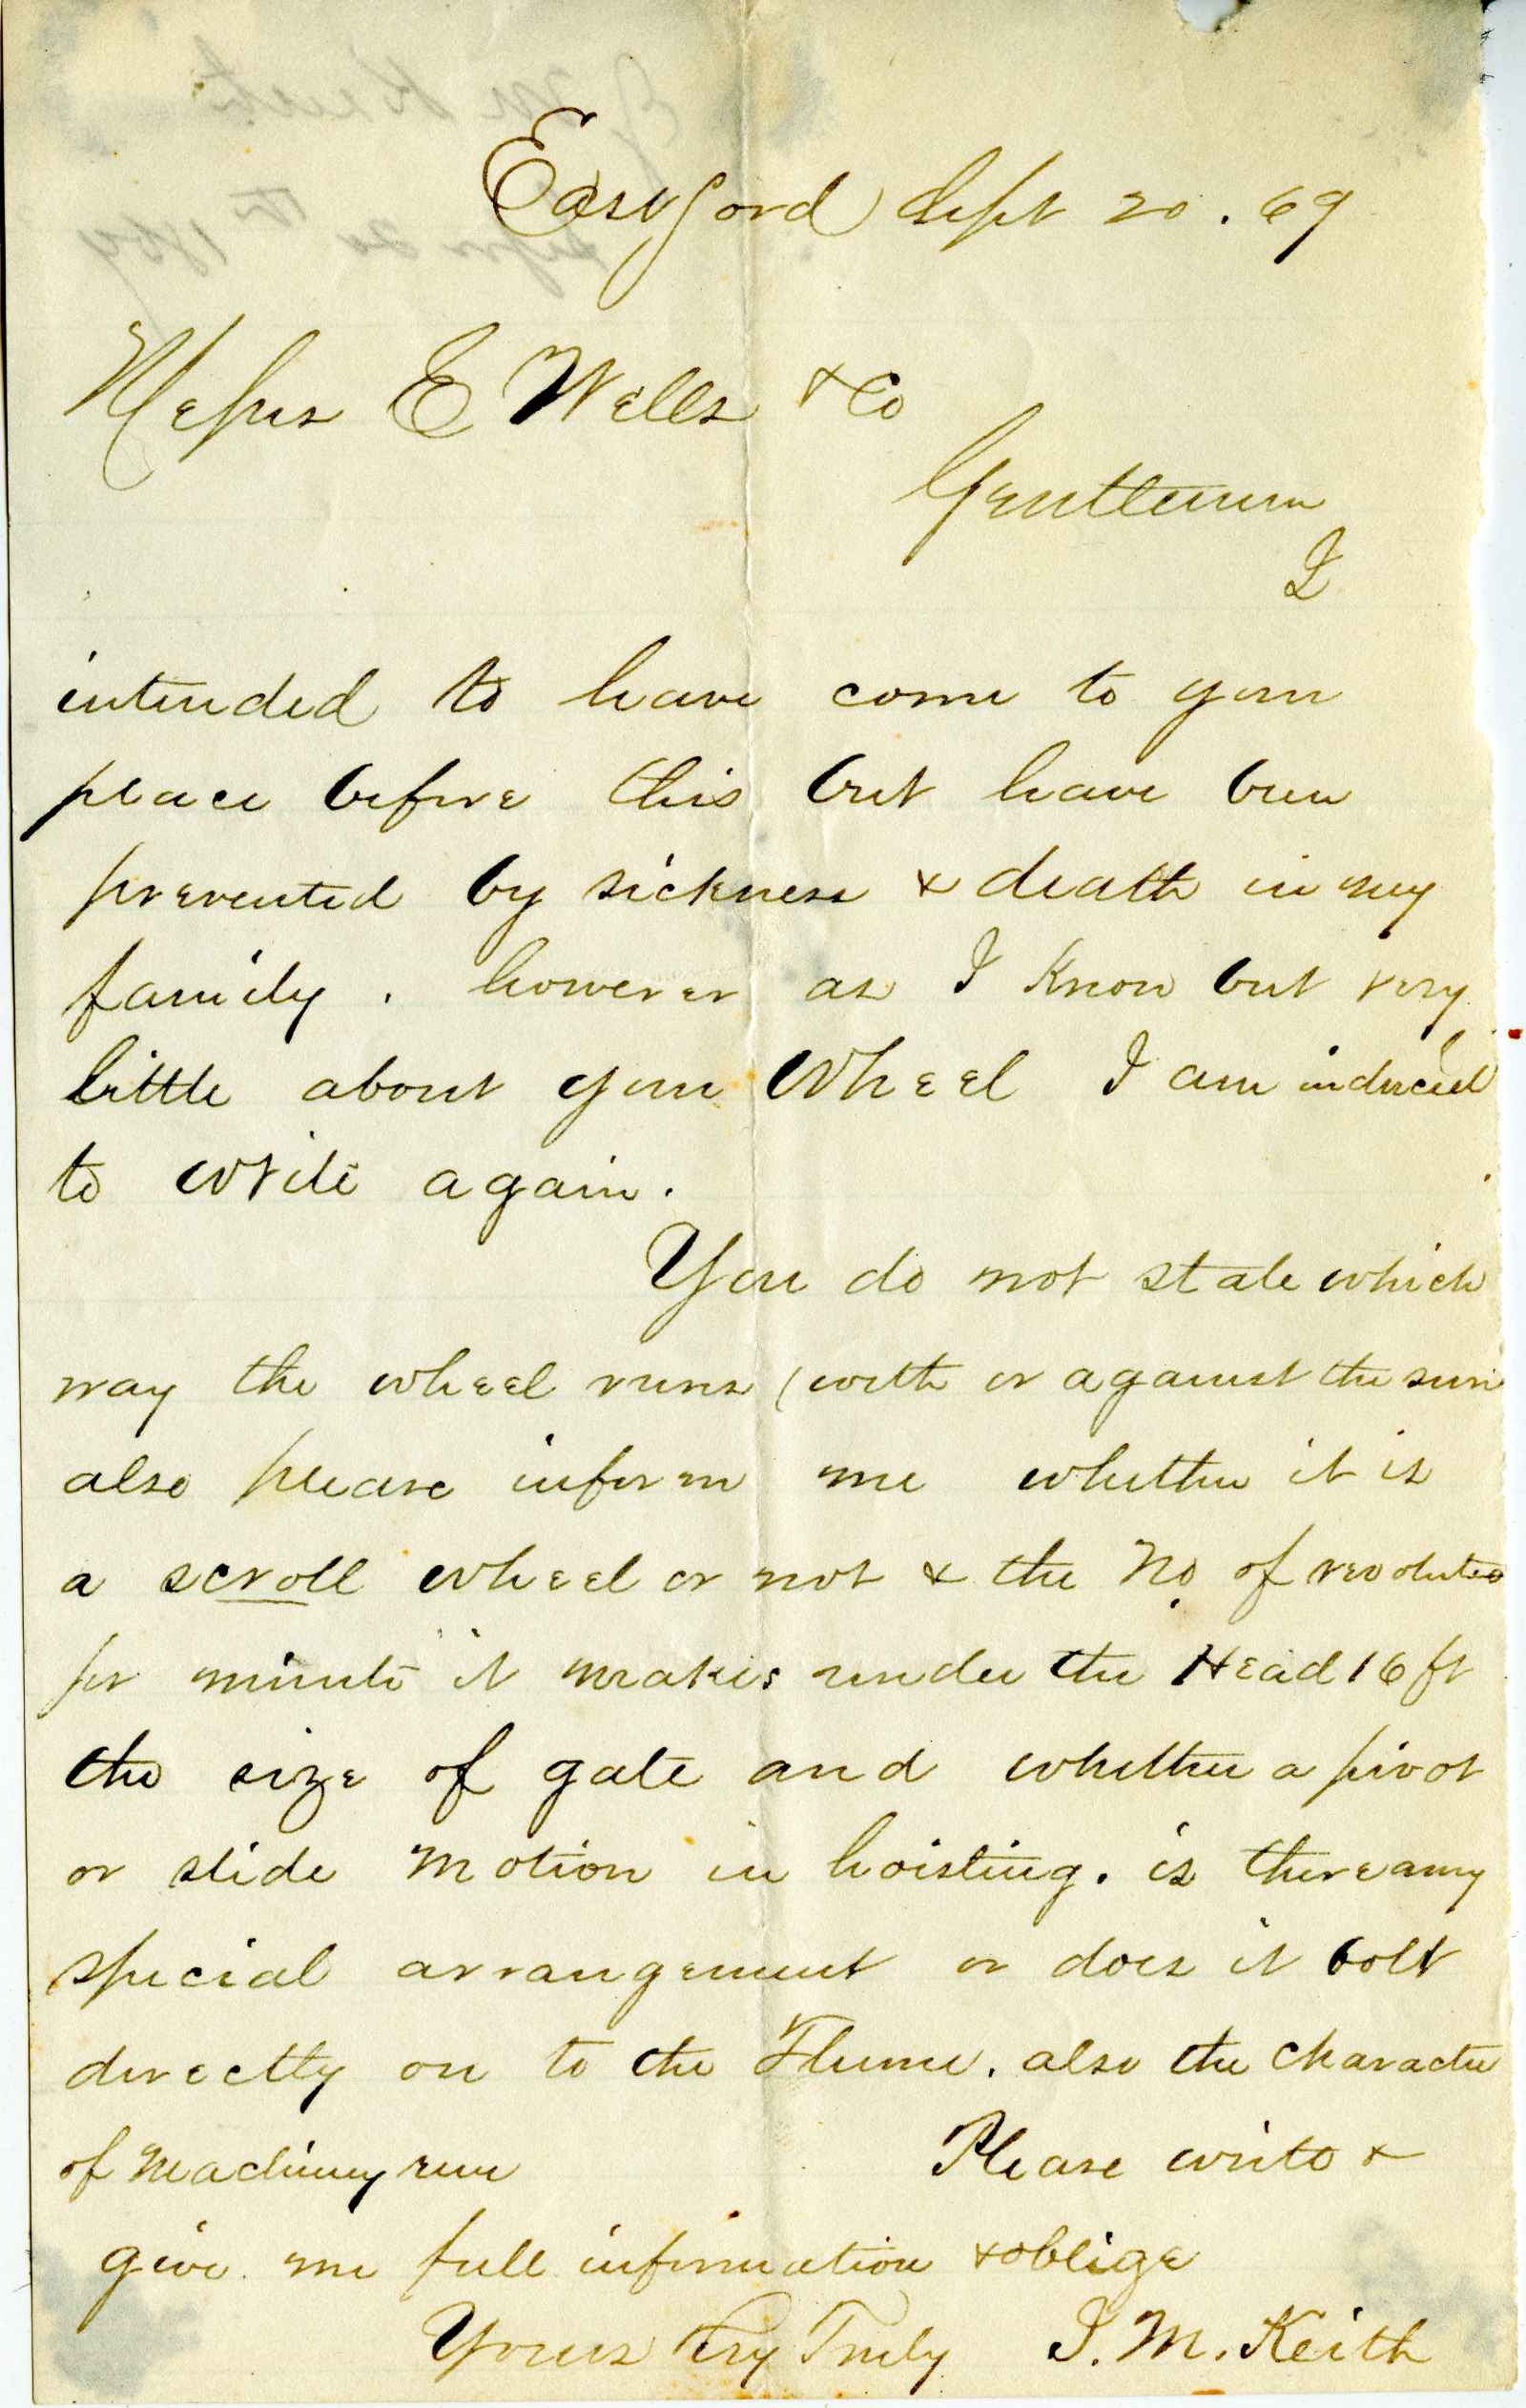 Eastford Sept 20. 69
Messrs E Wells & Co
Gentlemen
I
intended to have come to your
place before this but have been
prevented by sickness & death in my
family. however as I know but very
little about your Wheel I am induced
to write again.
You do not state which
way the wheel runs (with or against the sun
also please inform me whether it is
a scroll wheel or not & the No. of revolutions
pr minute it makes under the Head 16 ft
the size of gate and whether a pivot
or slide Motion in hoisting. is there any
special arrangement or does it bolt
directly on to the Flume. also the character
of Machinery run Please write &
give me full information & oblige
Yours Very Truly J. M. Keith